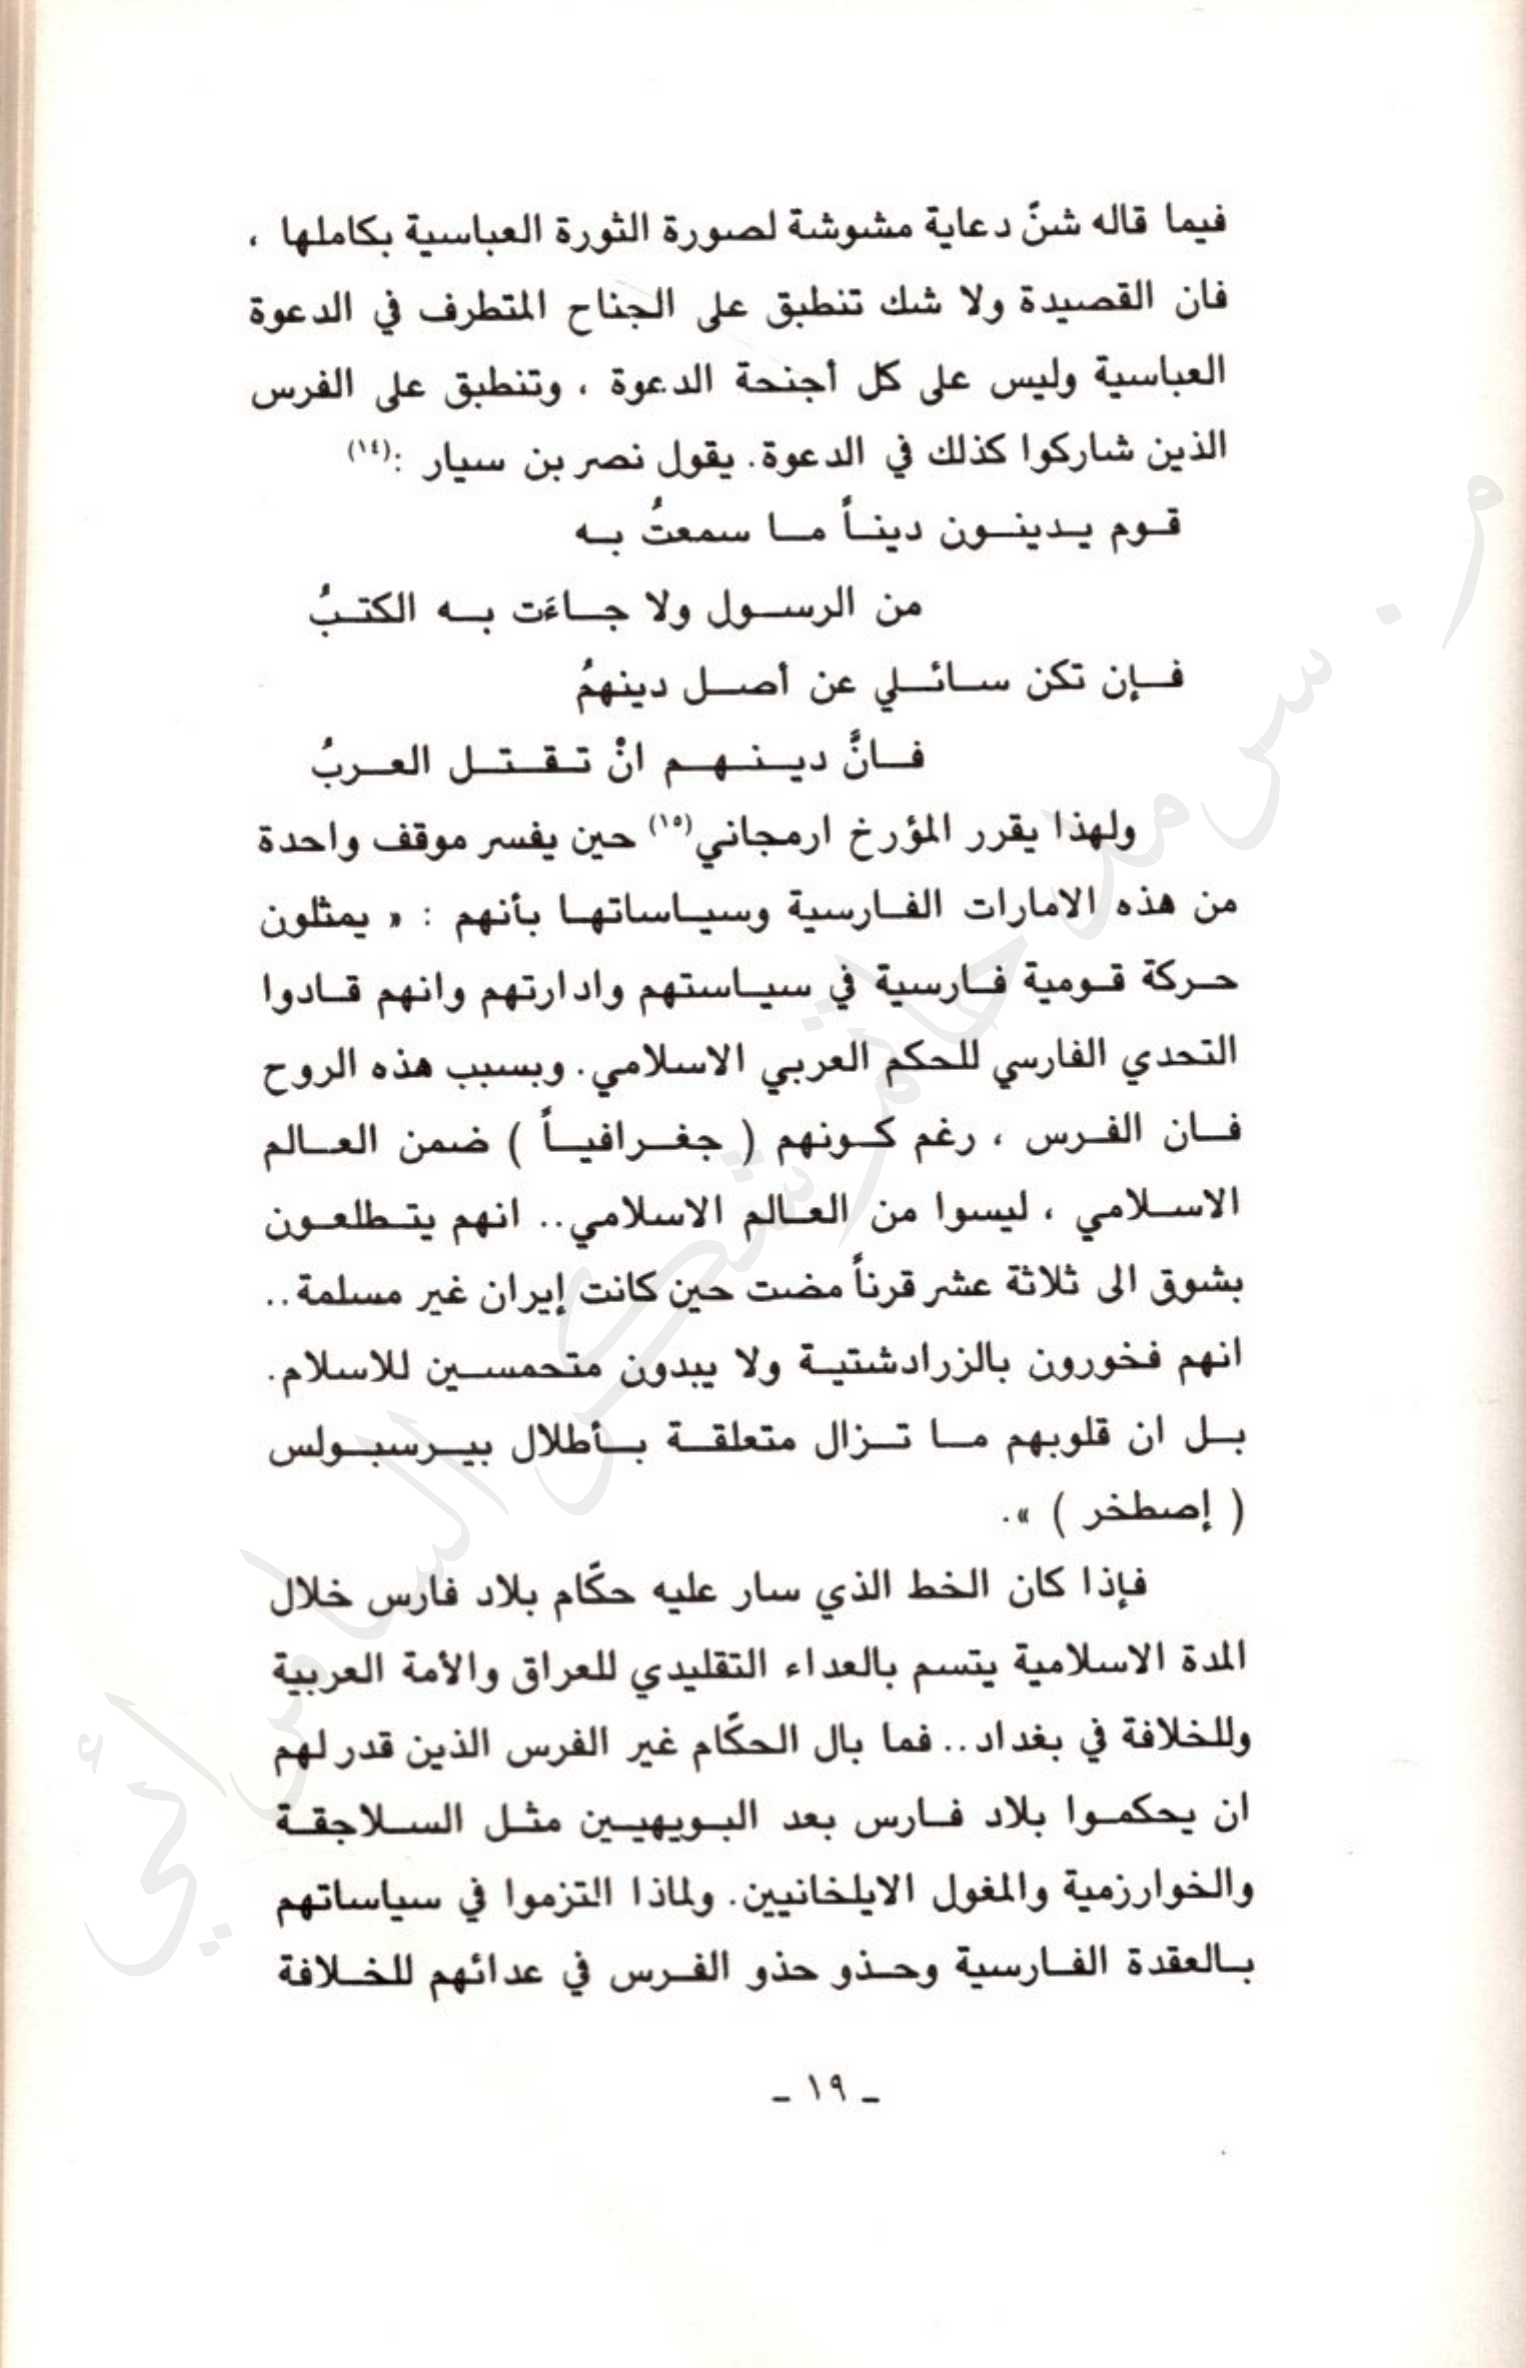 فيما قاله شنّ دعاية مشوشة لصورة الثورة العباسية بكاملها ،
فان القصيدة ولا شك تنطبق على الجناح المتطرف في الدعوة
العباسية وليس على كل أجنحة الدعوة ، وتنطبق على الفرس
الذين شاركوا كذلك في الدعوة. يقول نصر بن سيار :(١٤)
قوم يدينون ديناً ما سمعتُ به
من الرسول ولا جاءَت به الكتبُ
فإن تكن سائلي عن أصل دينهمُ
فانَّ دينهم انْ تقتل العربُ
ولهذا يقرر المؤرخ ارمجاني(١٥) حين يفسر موقف واحدة
من هذه الامارات الفارسية وسياساتها بأنهم : « يمثلون
حركة قومية فارسية في سياستهم وادارتهم وانهم قادوا
التحدي الفارسي للحكم العربي الاسلامي. وبسبب هذه الروح
فان الفرس ، رغم كونهم ( جغرافياً ) ضمن العالم
الاسلامي ، ليسوا من العالم الاسلامي.. انهم يتطلعون
بشوق الى ثلاثة عشر قرناً مضت حين كانت إيران غير مسلمة..
انهم فخورون بالزرادشتية ولا يبدون متحمسين للاسلام.
بل ان قلوبهم ما تزال متعلقة بأطلال بيرسبولس
( إصطخر ) ».
فإذا كان الخط الذي سار عليه حكّام بلاد فارس خلال
المدة الاسلامية يتسم بالعداء التقليدي للعراق والأمة العربية
وللخلافة في بغداد.. فما بال الحكّام غير الفرس الذين قدر لهم
ان يحكموا بلاد فارس بعد البويهيين مثل السلاجقة
والخوارزمية والمغول الايلخانيين. ولماذا التزموا في سياساتهم
بالعقدة الفارسية وحذو حذو الفرس في عدائهم للخلافة
ـ ١٩ ـ